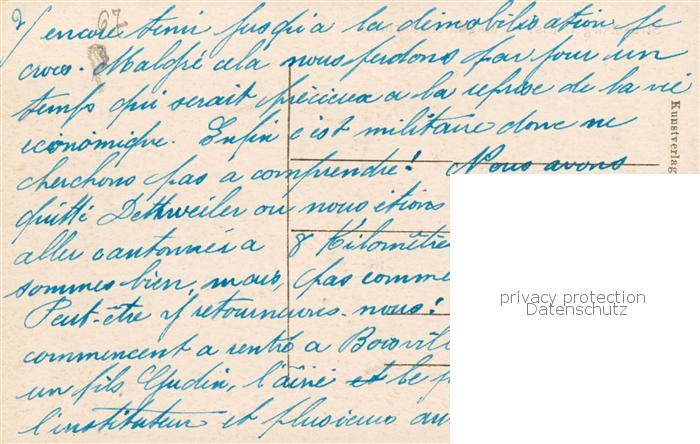 2/ 67
encore tenu jusqu'a la démobilisation je
crois. Malgré cela nous perdons par jour un
temps qui serait précieux a la reprise de la vie
economique. Enfin c'est militaire donc ne
cherchons pas a comprendre! Nous avons
quitté Dettweiler ou nous étions
aller cantonnés a 8 Kilomètre
sommes bien, mais, pas comme
Peut-être y retournerons-nous!
commencent a rentré a
un fils Gudin, l'ainé et le
l'instituteur et plusieurs au
Kunstverlag
privacy protection
Datenschutz